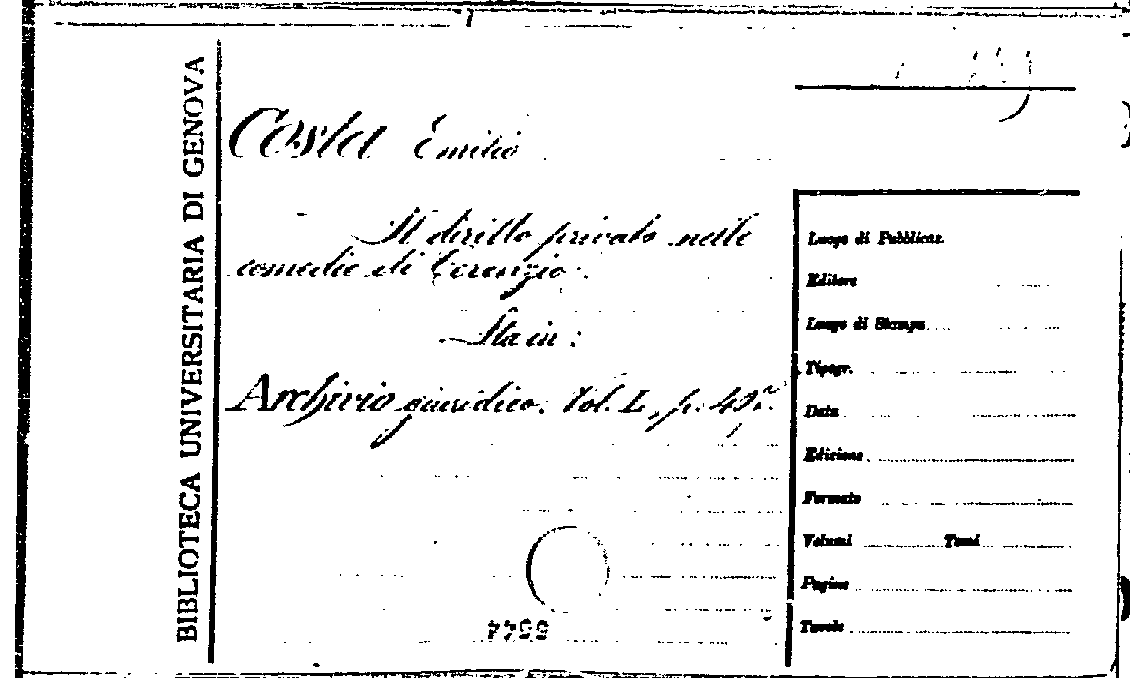 BIBLIOTECA UNIVERSITARIA DI GENOVA
Costa Emilio
Il diritto privato nelle
comedie di Terenzio.
Sta in:
Archivio giuridico. Vol. L, p.
Luogo di Pubblicaz.
Editore
Luogo di Stampa
Tipogr.
Data
Edizione
Formato
Volumi Tomi
Pagine
Tavole